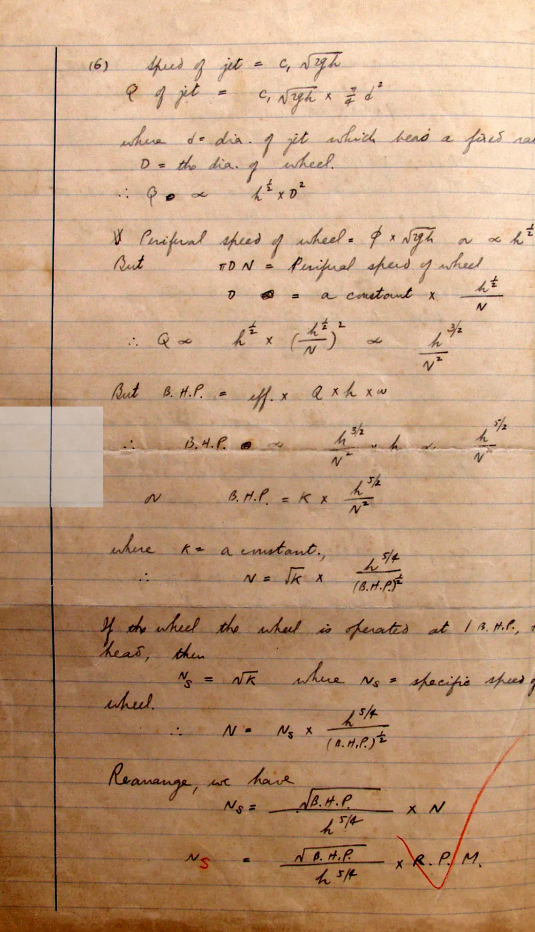 (6) Speed of jet = c₁ √2gh
Q of jet = c₁ √2gh × π/4 d²
where d = dia. of jet which bears a fixed
D = the dia. of wheel.
∴ Q ∝ h^½ × D²
Periferal speed of wheel = φ × √2gh or ∝ h^½
But πDN = Periferal speed of wheel
D = a constant × h^½/N
∴ Q ∝ h^½ × (h^½/N)² ∝ h^3/2/N²
But B.H.P. = eff. × Q × h × w
∴ B.H.P. ∝ h^3/2/N² × h ∝ h^5/2/N²
or B.H.P. = K × h^5/2/N²
where K = a constant.,
∴ N = √K × h^5/4/(B.H.P.)^½
If the wheel the wheel is operated at 1 B.H.P.,
head, then
N_S = √K where N_S = specific speed
wheel.
∴ N = N_S × h^5/4/(B.H.P.)^½
Rearrange, we have
N_S = √B.H.P./h^5/4 × N
N_S = √B.H.P./h^5/4 × R.P.M.